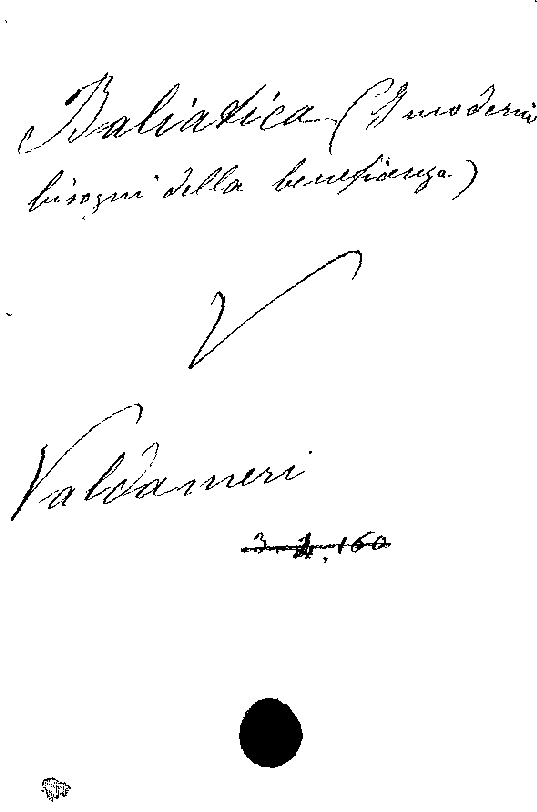 Baliatica (I moderni
bisogni della beneficenza)
V
Valdameri
3. 2. 160